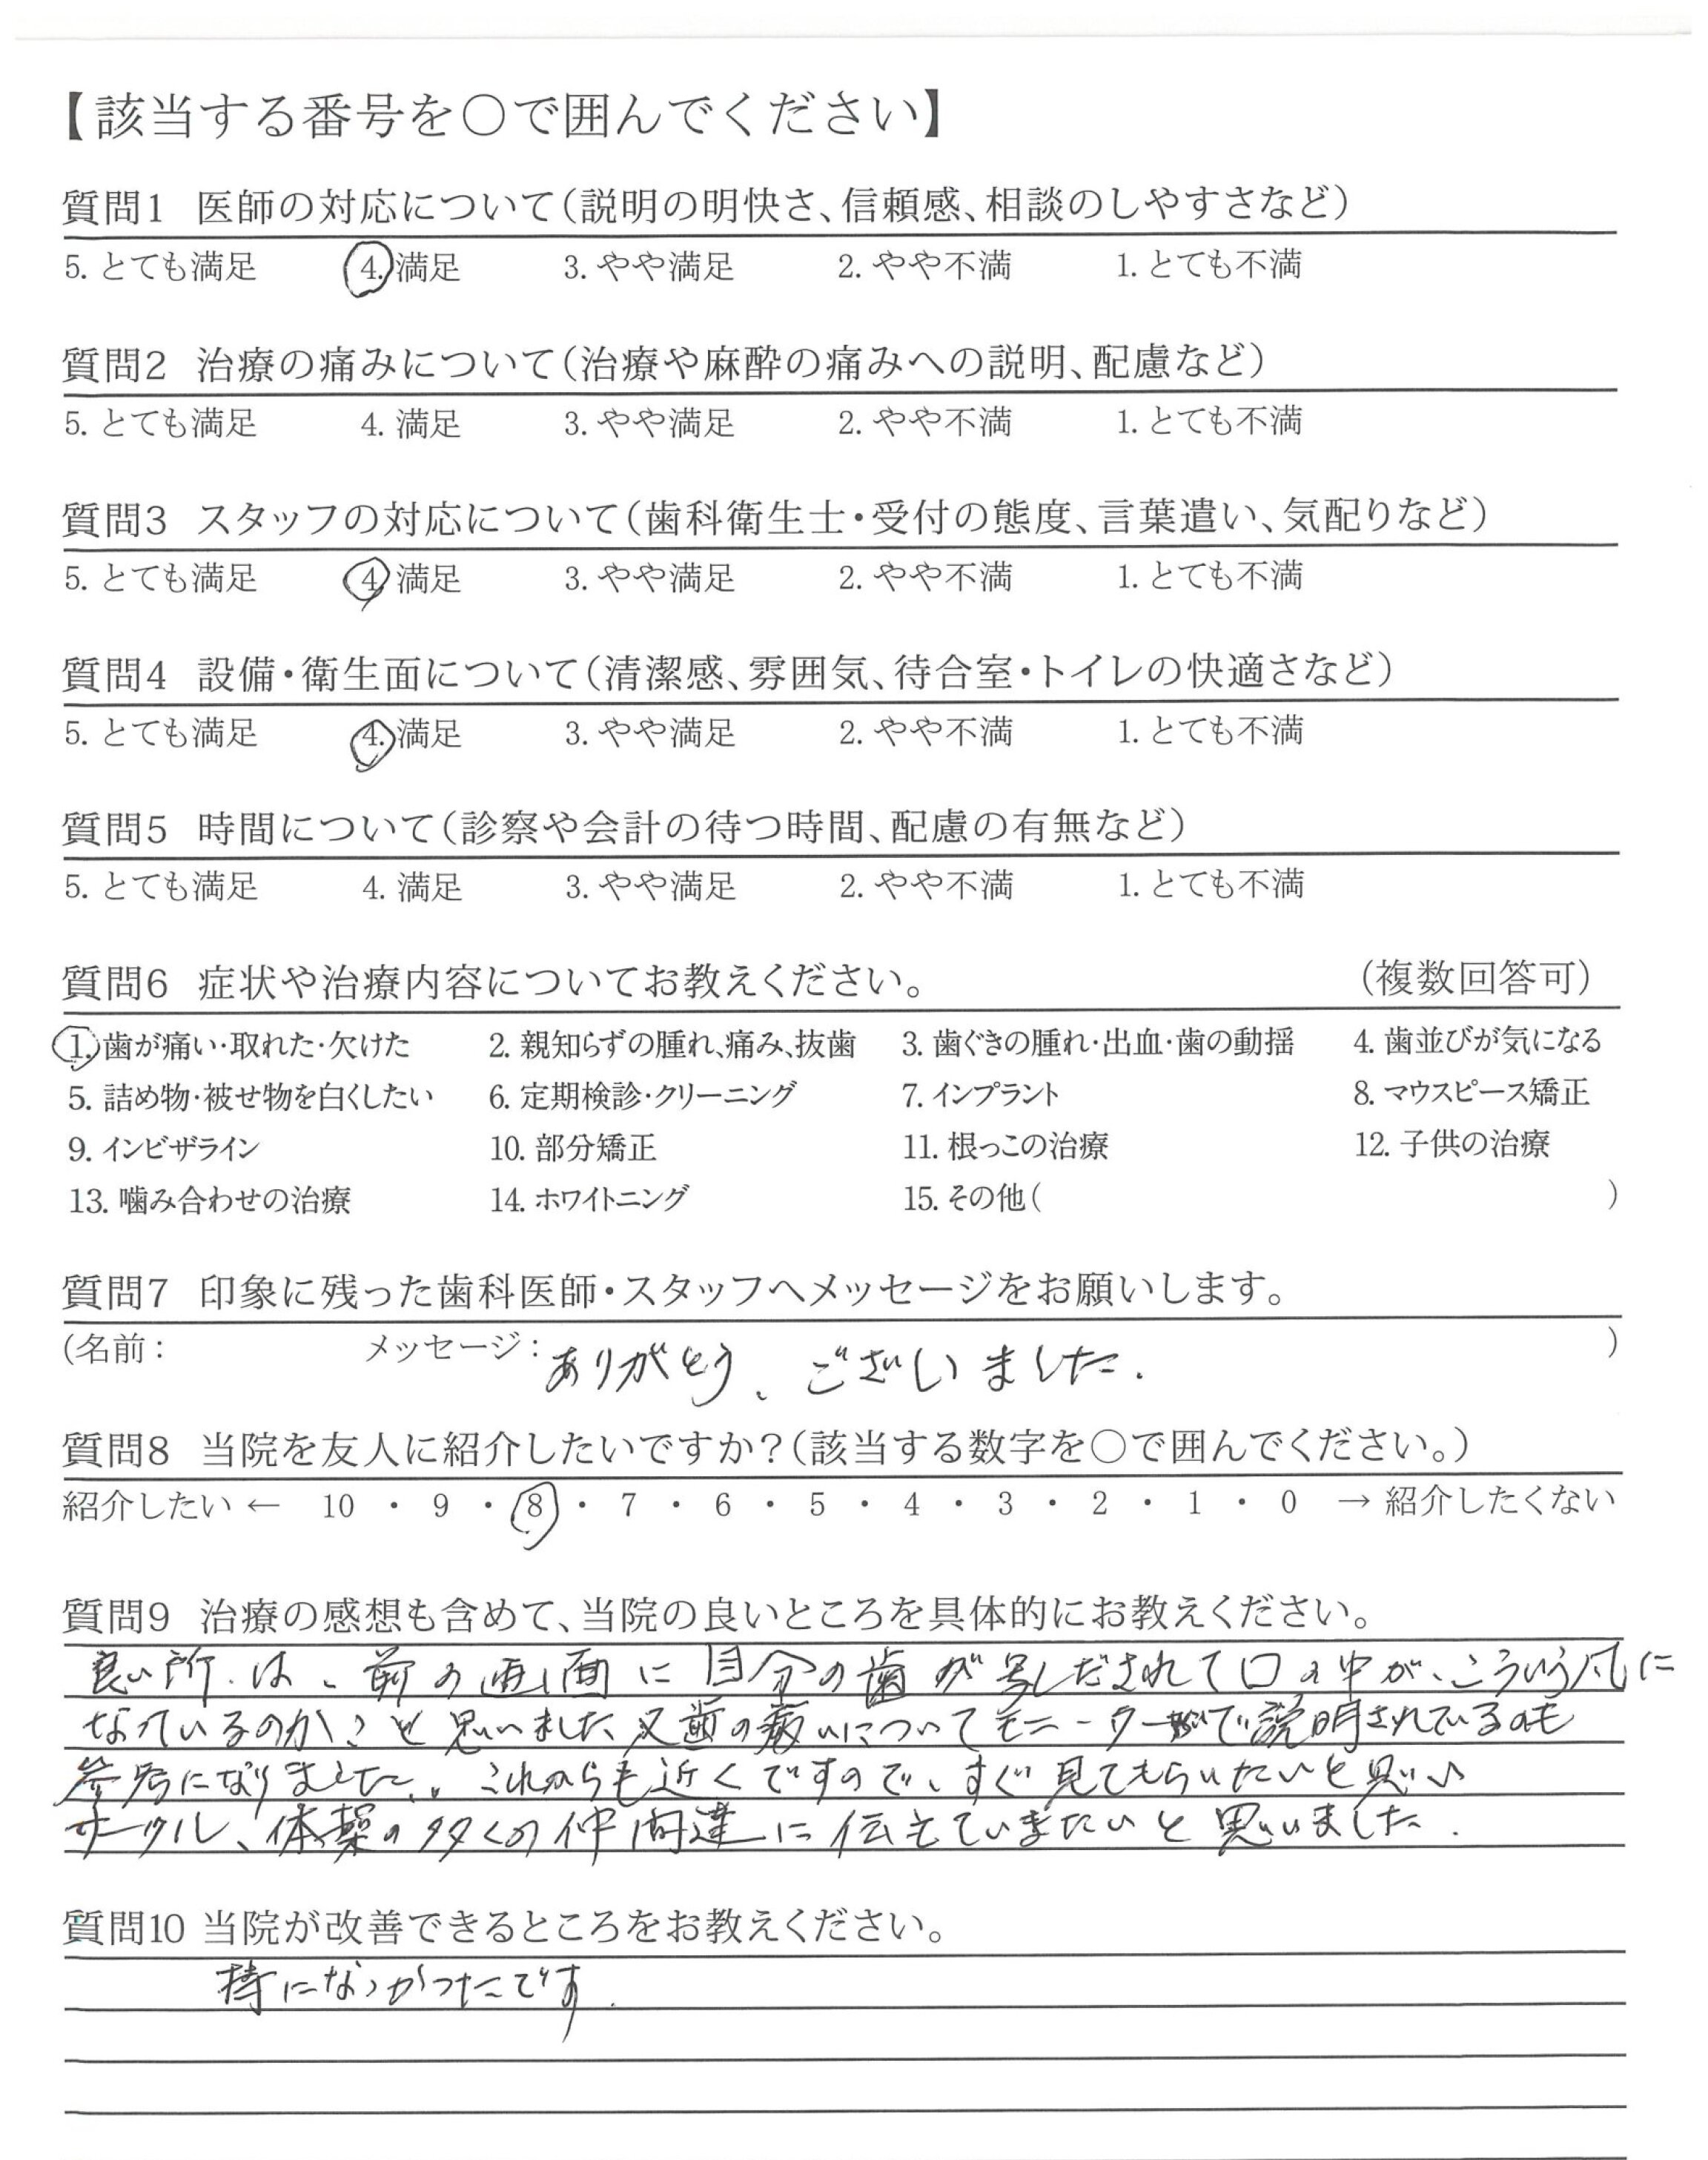 【該当する番号を○で囲んでください】
質問1 医師の対応について(説明の明快さ、信頼感、相談のしやすさなど)
5. とても満足 4. 満足 3. やや満足 2. やや不満 1. とても不満
質問2 治療の痛みについて(治療や麻酔の痛みへの説明、配慮など)
5. とても満足 4. 満足 3. やや満足 2. やや不満 1. とても不満
質問3 スタッフの対応について(歯科衛生士・受付の態度、言葉遣い、気配りなど)
5. とても満足 4 満足 3. やや満足 2. やや不満 1. とても不満
質問4 設備・衛生面について(清潔感、雰囲気、待合室・トイレの快適さなど)
5. とても満足 4. 満足 3. やや満足 2. やや不満 1. とても不満
質問5 時間について(診察や会計の待つ時間、配慮の有無など)
5. とても満足 4. 満足 3. やや満足 2. やや不満 1. とても不満
質問6 症状や治療内容についてお教えください。 (複数回答可)
1. 歯が痛い・取れた・欠けた 2. 親知らずの腫れ、痛み、抜歯 3. 歯ぐきの腫れ・出血・歯の動揺 4. 歯並びが気になる
5. 詰め物・被せ物を白くしたい 6. 定期検診・クリーニング 7. インプラント 8. マウスピース矯正
9. インビザライン 10. 部分矯正 11. 根っこの治療 12. 子供の治療
13. 噛み合わせの治療 14. ホワイトニング 15. その他( )
質問7 印象に残った歯科医師・スタッフへメッセージをお願いします。
(名前: メッセージ: ありがとう、ございました. )
質問8 当院を友人に紹介したいですか?(該当する数字を○で囲んでください。)
紹介したい ← 10 ・ 9 ・ 8 ・ 7 ・ 6 ・ 5 ・ 4 ・ 3 ・ 2 ・ 1 ・ 0 → 紹介したくない
質問9 治療の感想も含めて、当院の良いところを具体的にお教えください。
良い所は、前の画面に自分の歯が写しだされて口の中が、こういう風に
なっているのか?と思いました又歯の についてモニターで説明されているのも
参考になりました.. これからも近くですので、すぐ見てもらいたいと思い
サークル、体操の多くの仲間達に伝えていきたいと思いました.
質問10 当院が改善できるところをお教えください。
特になかったです.